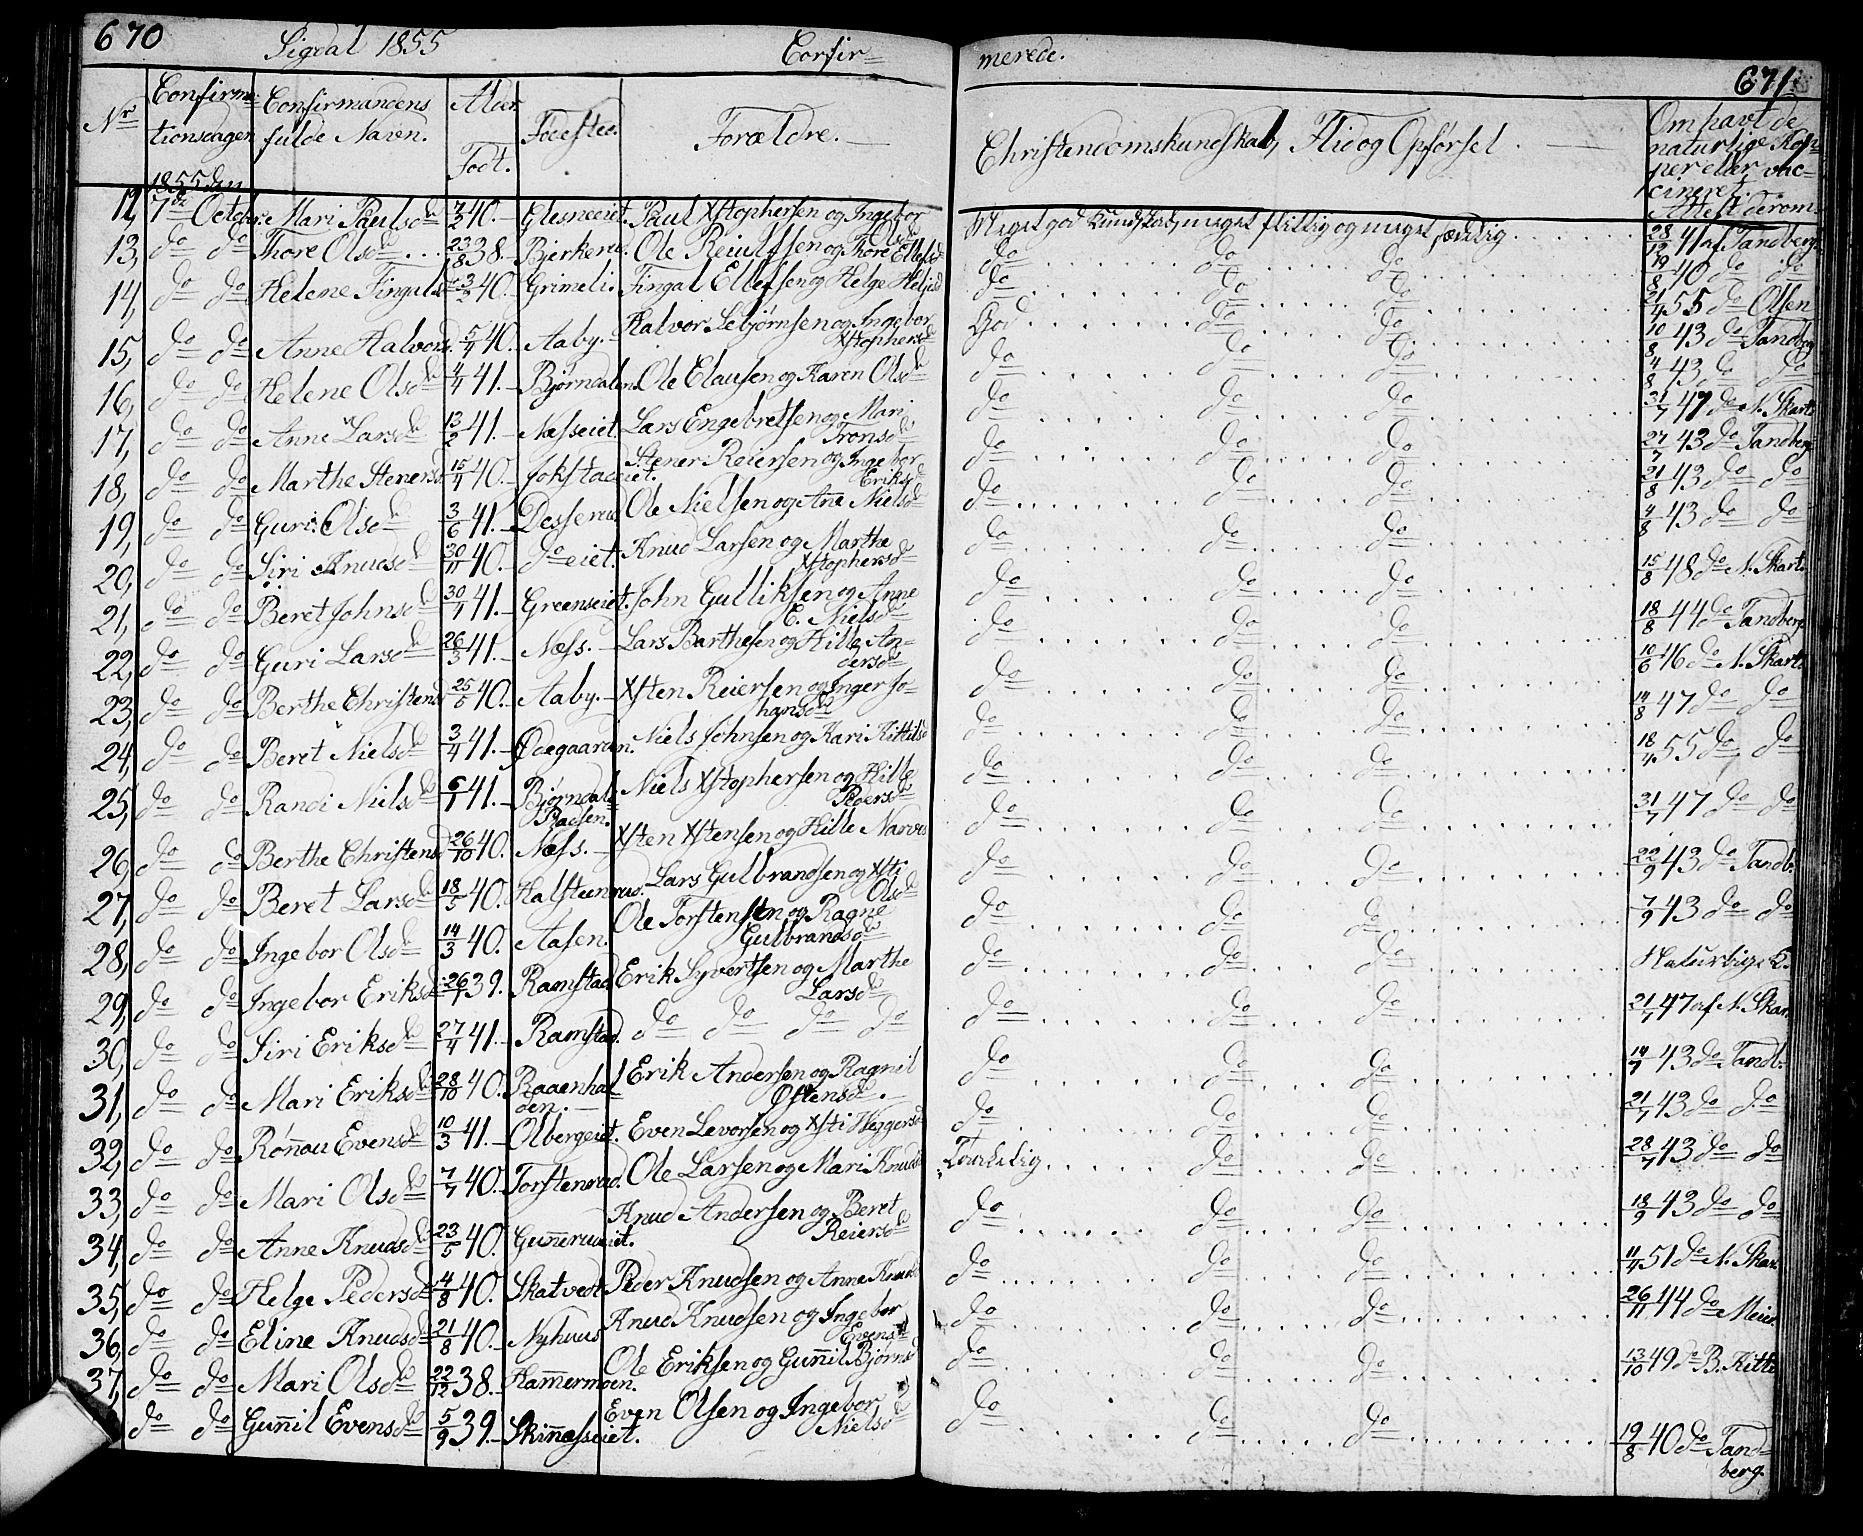 670 Sigdal 1855 Confir= merede. 671
Nr Confirma= tionsdagen Confirmandens fulde Navn. Alder Født. Fødested. Forældre. Christendomskundskab, Flid og Opførsel. Om havt de naturlige Kop= per eller vac= cineret. Attest derom.
1855 den
12, 7de Octobr: Mari Paulsd 7/2 40. Glesneeiet. Paul Xstophersen og Ingebor Olsd Meget god Kundskab, meget flittig og meget sædelig 28/12 41 af Tandberg
13, do do Thore Olsd 23/8 38. Bjerkerud. Ole Reiulfsen og Thore Ellefsd do do do 19/8 40 do do
14, do do Helene Fingalsd 3/2 40. Grimeli. Fingal Ellefsen og Helge Helgesd do do do 21/4 55 do Olsen
15, do do Anne Halvorsd. 5/4 40. Aaby. Halvor Sebjørnsen og Ingebor Xstophersd God do do 10/8 43 do Tandberg
16, do do Helene Olsd 4/4 41. Bjørndalen. Ole Clausen og Karen Olsd do do do 4/8 43 do do
17, do do Anne Larsd 13/2 41. Næsseiet. Lars Engebretsen og Mari Tronsd do do do 31/7 47 do N. Skarts
18, do do Marthe Stenersd 15/4 40. Jokstadeiet. Stener Reiersen og Ingebor Eriksd do do do 27/7 43 do Tandberg
19, do do Guri Olsd 3/6 41. Desserud Ole Nielsen og Ane Nielsd do do do 21/8 43 do do
20, do do Siri Knudsd 30/11 40. do eiet. Knud Larsen og Marthe Xstophersd do do do 4/8 43 do do
21, do do Beret Johnsd 30/1 41. Greenseiet. John Gulliksen og Anne E. Nielsd do do do 15/8 48 do N. Skarts
22, do do Guri Larsd 26/3 41. Næss. Lars Barthesen og Hille An= dersd do do do 18/8 44 do Tandberg
23, do do Berthe Christensd 25/5 40. Aaby. Xsten Reiersen og Inger Jo= hansd do do do 10/6 46 do N. Skarts
24, do do Beret Nielsd 3/4 41. Ødegaarden. Niels Johnsen og Kari Kittilsd do do do 14/8 47 do do
25, do do Randi Nielsd 6/1 41. Bjørndals Pladsen. Niels Xstophersen og Hille Pedersd do do do 18/4 55 do do
26, do do Berthe Christensd 26/10 40. Næss. Xsten Xstensen og Hille Narvesd do do do 31/7 47 do do
27, do do Beret Larsd 18/5 40. Halsteenrud. Lars Gulbrandsen og Xsti Olsd do do do 22/9 43 do Tandb.
28, do do Ingebor Olsd 14/3 40. Aasen. Ole Torstensen og Ragne Gulbrandsd do do do 7/9 43 do do
29, do do Ingebor Eriksd 26/1 39. Ramstad Erik Syvertsen og Marthe Larsd do do do Naturlige K.
30, do do Siri Eriksd 27/4 41. Ramstad. do do do do do do do 21/7 47 af N. Skar
31, do do Mari Eriksd 28/10 40. Raaenhal den. Erik Andersen og Ragnil Østensd. do do do 14/7 43 do Tandb.
32, do do Rønnau Evensd 10/3 41. Olbergeiet. Even Levorsen og Xsti Heggersd do do do 21/7 43 do do
33, do do Mari Olsd 7/7 40. Torstenrud. Ole Larsen og Mari Knudsd Taalelig do do 28/7 43 do do
34, do do Anne Knudsd 23/5 40. Gunnerudeiet. Knud Andersen og Beret Reiersd do do do 18/9 43 do do
35, do do Helge Pedersd 4/8 40. Skatvedt. Peder Knudsen og Anne Knudsd do do do 11/4 51 do N. Skar
36, do do Eline Knudsd 21/8 40. Nyhuus Knud Knudsen og Ingebor Evensd do do do 26/11 44 do Meier
37, do do Mari Olsd 22/12 38. Kammermoen. Ole Eriksen og Gunnil Bjørnsd do do do 13/10 49 do B. Kitti
do do Gunnil Evensd 5/9 39. Skinnesseiet. Even Olsen og Ingebor Nielsd do do do 19/8 40 do Tand= berg.